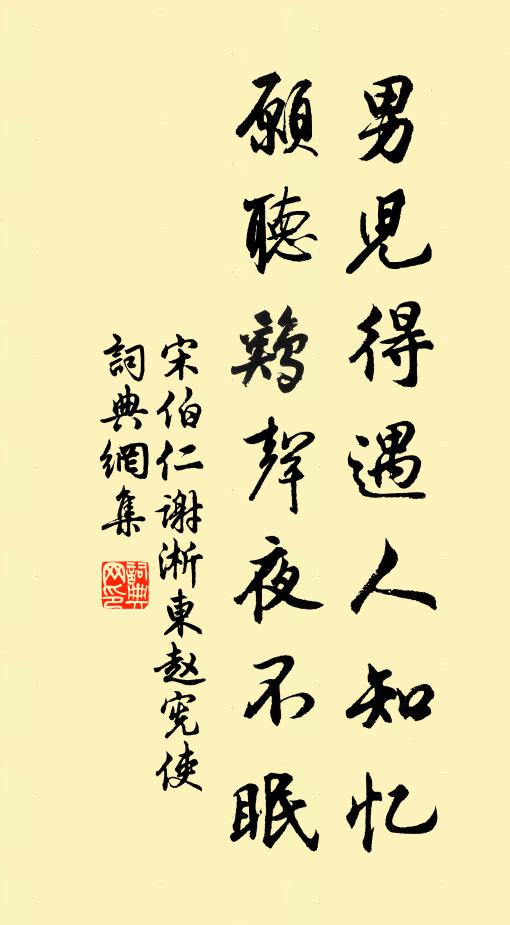 男児得遇人知忆
願聽鷄聲夜不眠
宋伯仁謝淅東赵宪使
詞典網集
詞典网印